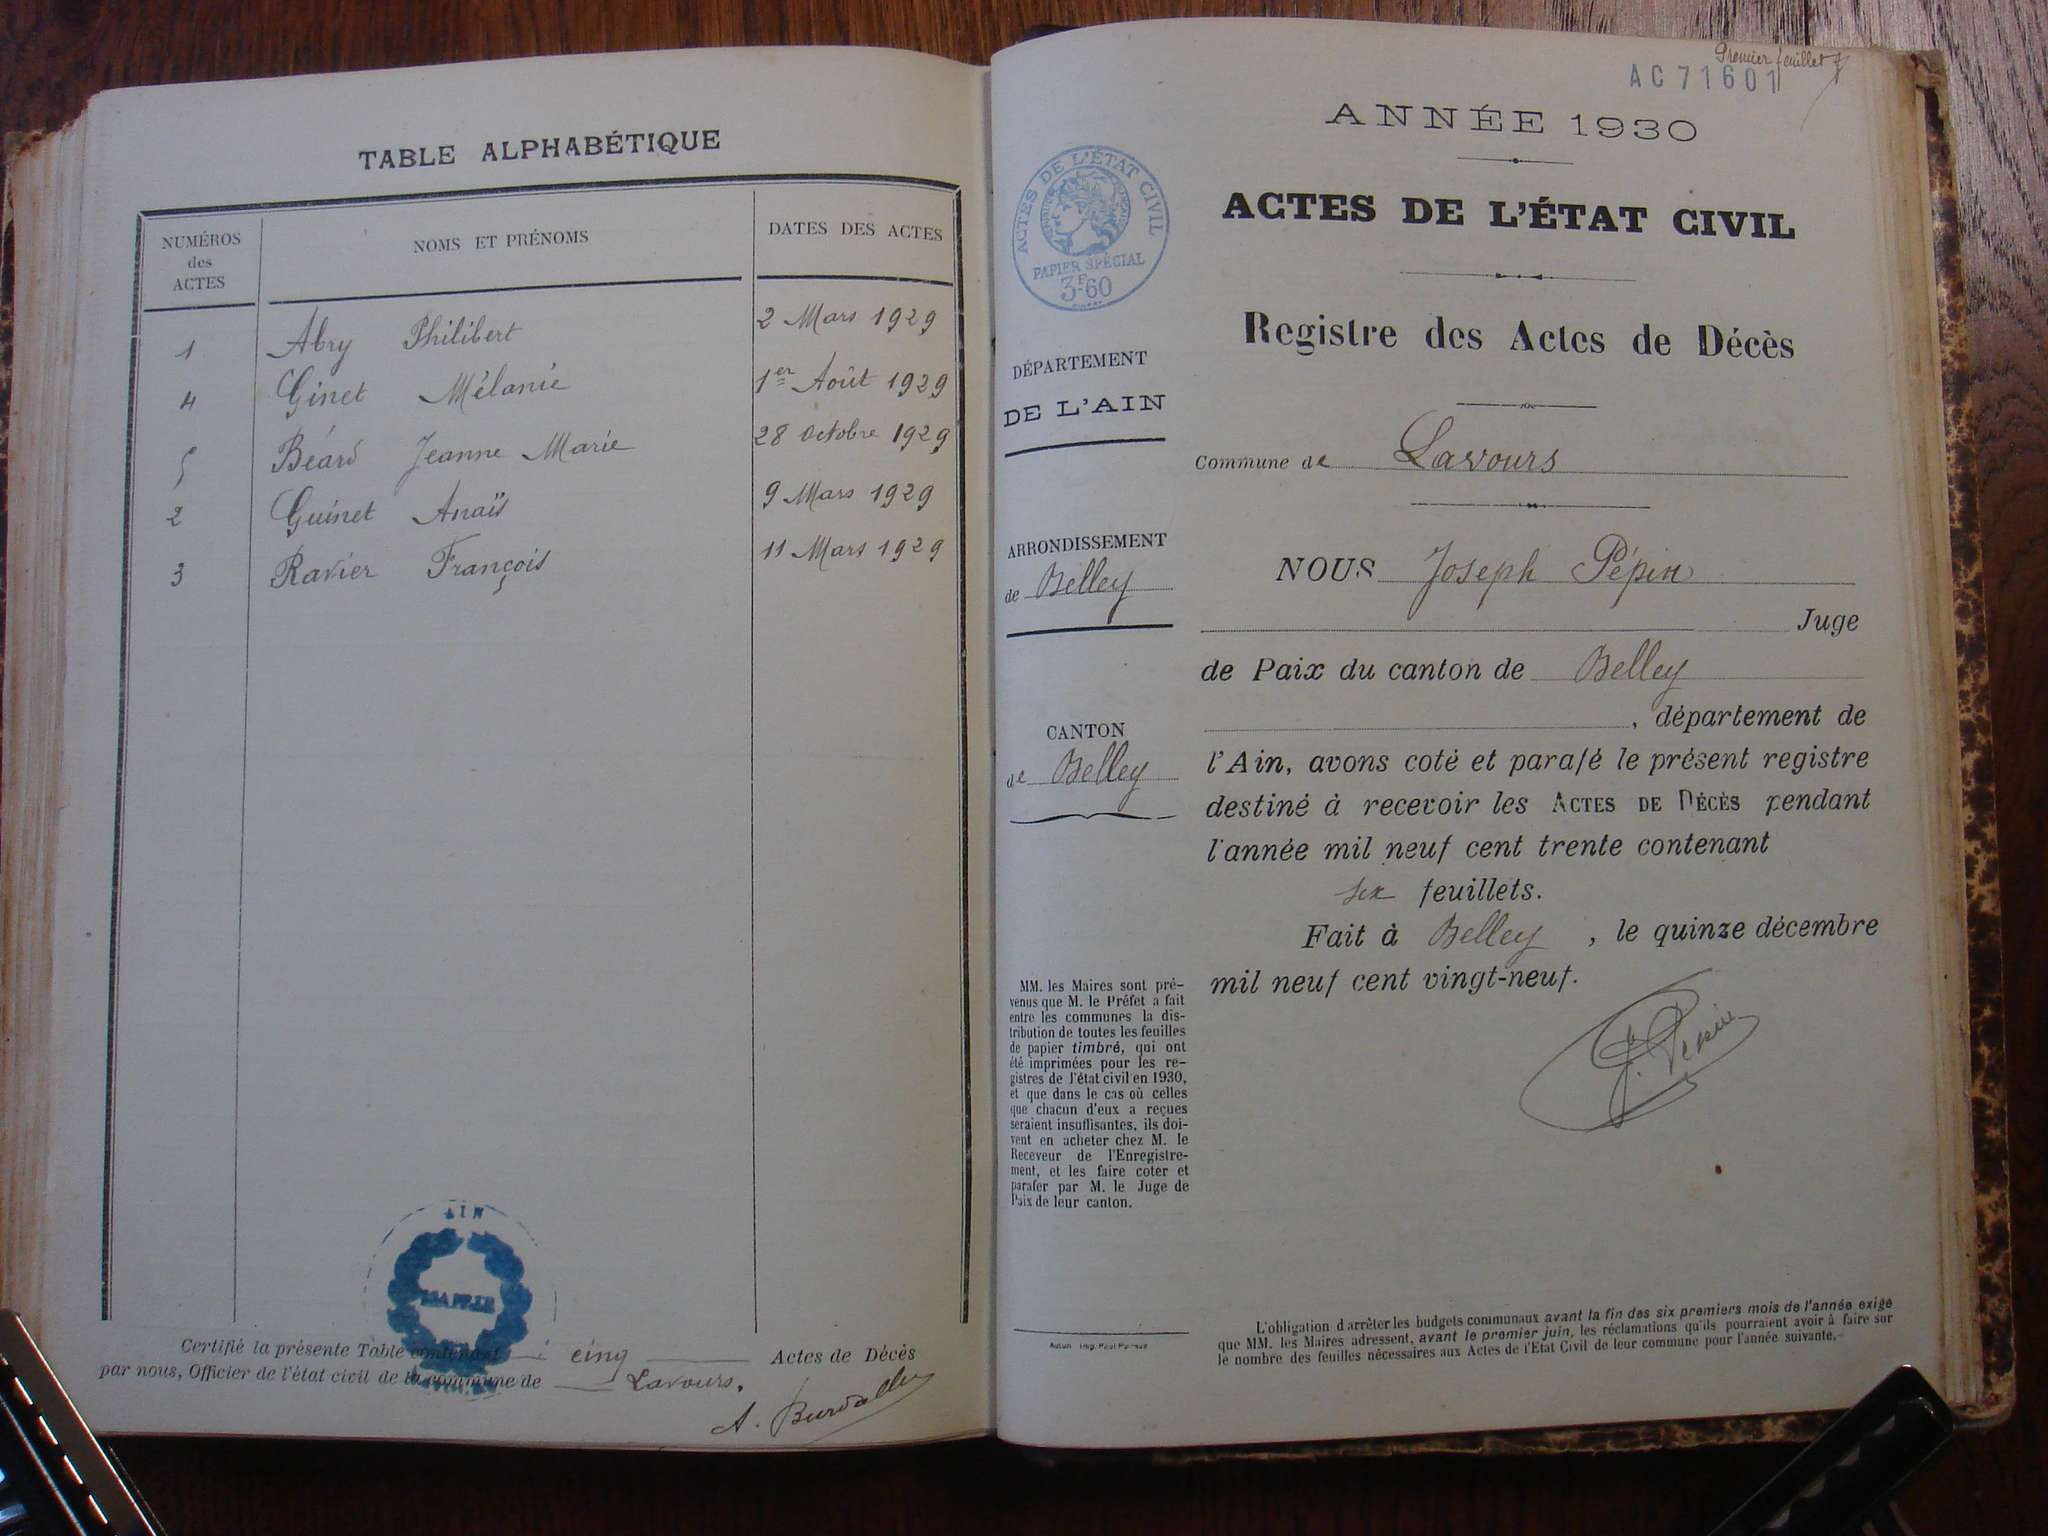 TABLE ALPHABÉTIQUE
NUMÉROS des ACTES NOMS ET PRÉNOMS DATES DES ACTES
1 Abry Philibert 2 Mars 1929
4 Ginet Mélanie 1er Août 1929
5 Béard Jeanne Marie 28 Octobre 1929
2 Guinet Anaïs 9 Mars 1929
3 Ravier François 11 Mars 1929
AIN
MAIRIE
Certifié la présente Table contenant cinq Actes de Décès
par nous, Officier de l'état civil de la commune de Lavours.
Premier feuillet
AC 71601
ANNÉE 1930
ACTES DE L'ÉTAT CIVIL
PAPIER SPÉCIAL
3F60
ACTES DE L'ÉTAT CIVIL
Registre des Actes de Décès
DÉPARTEMENT
DE L'AIN
Commune de Lavours
ARRONDISSEMENT
de Belley
CANTON
de Belley
NOUS Joseph Pépin
Juge
de Paix du canton de Belley
, département de
l'Ain, avons coté et parafé le présent registre
destiné à recevoir les ACTES DE DÉCÈS pendant
l'année mil neuf cent trente contenant
six feuillets.
Fait à Belley , le quinze décembre
mil neuf cent vingt-neuf.
J. Pépin
MM. les Maires sont pré-
venus que M. le Préfet a fait
entre les communes la dis-
tribution de toutes les feuilles
de papier timbré, qui ont
été imprimées pour les re-
gistres de l'état civil en 1930,
et que dans le cas où celles
que chacun d'eux a reçues
seraient insuffisantes, ils doi-
vent en acheter chez M. le
Receveur de l'Enregistre-
ment, et les faire coter et
parafer par M. le Juge de
Paix de leur canton.
L'obligation d'arrêter les budgets communaux avant la fin des six premiers mois de l'année exige
que MM. les Maires adressent, avant le premier juin, les réclamations qu'ils pourraient avoir à faire sur
le nombre des feuilles nécessaires aux Actes de l'Etat Civil de leur commune pour l'année suivante.